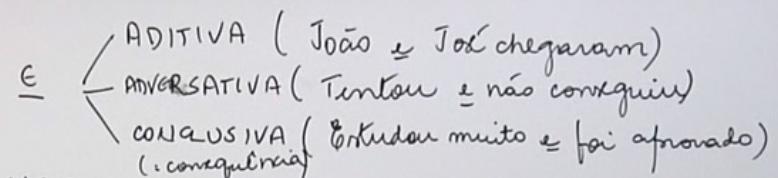 ADITIVA ( João e José chegaram)
E ADVERSATIVA ( Tentou e não conseguiu)
CONCLUSIVA ( Estudou muito e foi aprovado)
(: consequência)